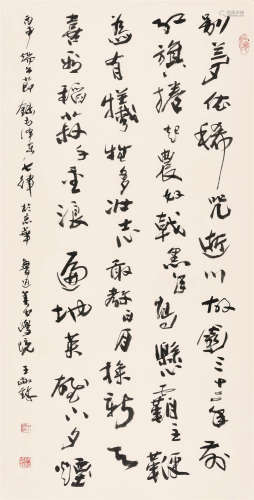 別夢依稀咒逝川故園三十二年前
紅旗捲起農奴戟黑手高懸霸主鞭
為有犧牲多壯志敢教日月換新天
喜看稻菽千重浪遍地英雄下夕煙
端午節錄毛澤東七律於京華魯迅